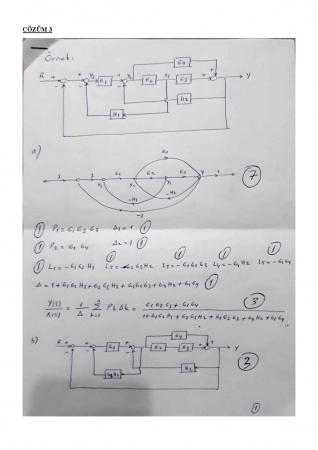 ÇÖZÜM 3
Örnek:
R + - y₃ + - G₁ + y₂ - G₂ y₁ G₃ G₄ + + Y
H₂
H₁
a)
G₄
1 1 y₃ G₁ y₂ G₂ y₁ G₃ Y 1
-H₁ -H₂
-1
7
1 P₁ = G₁G₂G₃ Δ₁ = 1 1
1 P₂ = G₁G₄ Δ₂ = 1 1
1 L₁ = -G₁G₂H₁ 1 L₂ = -G₂G₃H₂ 1 L₃ = -G₁G₂G₃ 1 L₄ = -G₄H₂ 1 L₅ = -G₁G₄
Δ = 1 + G₁G₂H₁ + G₂G₃H₂ + G₁G₂G₃ + G₄H₂ + G₁G₄ 1
Y(s)/R(s) = 1/Δ Σ PₖΔₖ = G₁G₂G₃ + G₁G₄ / 1 + G₁G₂H₁ + G₂G₃H₂ + G₁G₂G₃ + G₄H₂ + G₁G₄ 3
b)
R + - + - G₁ + - G₂ G₃ G₄ + + Y
H₂
3
1